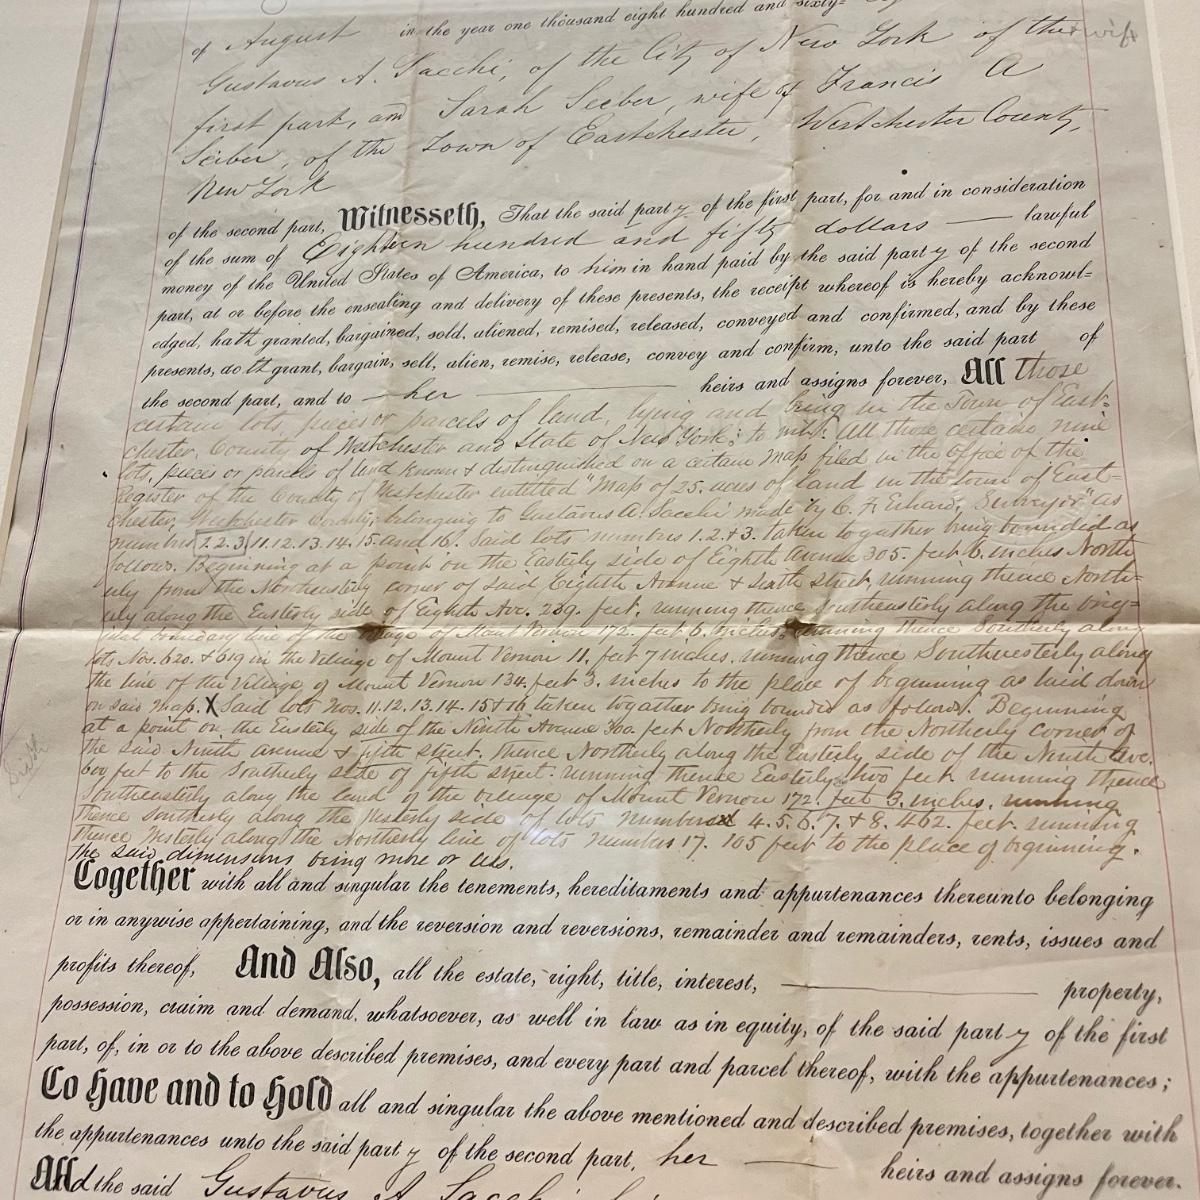 of August in the year one thousand eight hundred and sixty-
Gustavus A. Sacchi, of the City of New York of the & wife
first part, and Sarah Seiber, wife of Francis A
Seiber, of the Town of Eastchester, Westchester County,
New York
of the second part, Witnesseth, That the said party of the first part, for and in consideration
of the sum of Eighteen hundred and fifty dollars lawful
money of the United States of America, to him in hand paid by the said party of the second
part, at or before the ensealing and delivery of these presents, the receipt whereof is hereby acknowl-
edged, hath granted, bargained, sold, aliened, remised, released, conveyed and confirmed, and by these
presents, doth grant, bargain, sell, alien, remise, release, convey and confirm, unto the said part of
the second part, and to her heirs and assigns forever, All those
certain lots, pieces or parcels of land, lying and being in the Town of East-
chester, County of Westchester and State of New York; to wit: All those certain nine
lots, pieces or parcels of land known & distinguished on a certain Map filed in the Office of the
Register of the County of Westchester entitled "Map of 25. acres of land in the town of East-
chester, Westchester County, belonging to Gustavus A. Sacchi made by C. F. Erhard, Surveyor" as
numbers 1. 2. 3. 11. 12. 13. 14. 15. and 16. Said lots numbers 1. 2. & 3. taken together being bounded as
follows. Beginning at a point on the Easterly side of Eighth Avenue 305. feet 6. inches North
erly from the Northeasterly corner of said Eighth Avenue & Sixth street, running thence North-
erly along the Easterly side of Eighth Ave. 239. feet, running thence Southeasterly along the orig-
inal boundary line of the village of Mount Vernon 172. feet 6. inches, running thence Southerly along
lots Nos. 620. & 619 in the Village of Mount Vernon 11. feet 7 inches. running thence Southwesterly along
the line of the Village of Mount Vernon 134. feet 3. inches to the place of beginning as laid down
on said Map. X Said lots Nos. 11. 12. 13. 14. 15 & 16 taken together being bounded as follows. Beginning
at a point on the Easterly side of the Ninth Avenue 300. feet Northerly from the Northerly corner of
the said Ninth Avenue & fifth street. thence Northerly along the Easterly side of the Ninth Ave.
600 feet to the Southerly side of fifth street. running thence Easterly two feet running thence
Southeasterly along the land of the village of Mount Vernon 172. feet 3. inches. running
thence Southerly along the Westerly side of lots numbers 4. 5. 6. 7. & 8. 462. feet. running
thence Westerly along the Northerly line of lots number 17. 105 feet to the place of beginning.
the said dimensions being more or less.
Sixth
Together with all and singular the tenements, hereditaments and appurtenances thereunto belonging
or in anywise appertaining, and the reversion and reversions, remainder and remainders, rents, issues and
profits thereof, And Also, all the estate, right, title, interest, property,
possession, claim and demand, whatsoever, as well in law as in equity, of the said party of the first
part, of, in or to the above described premises, and every part and parcel thereof, with the appurtenances;
To Have and to Hold all and singular the above mentioned and described premises, together with
the appurtenances unto the said party of the second part, her heirs and assigns forever.
And the said Gustavus A. Sacchi